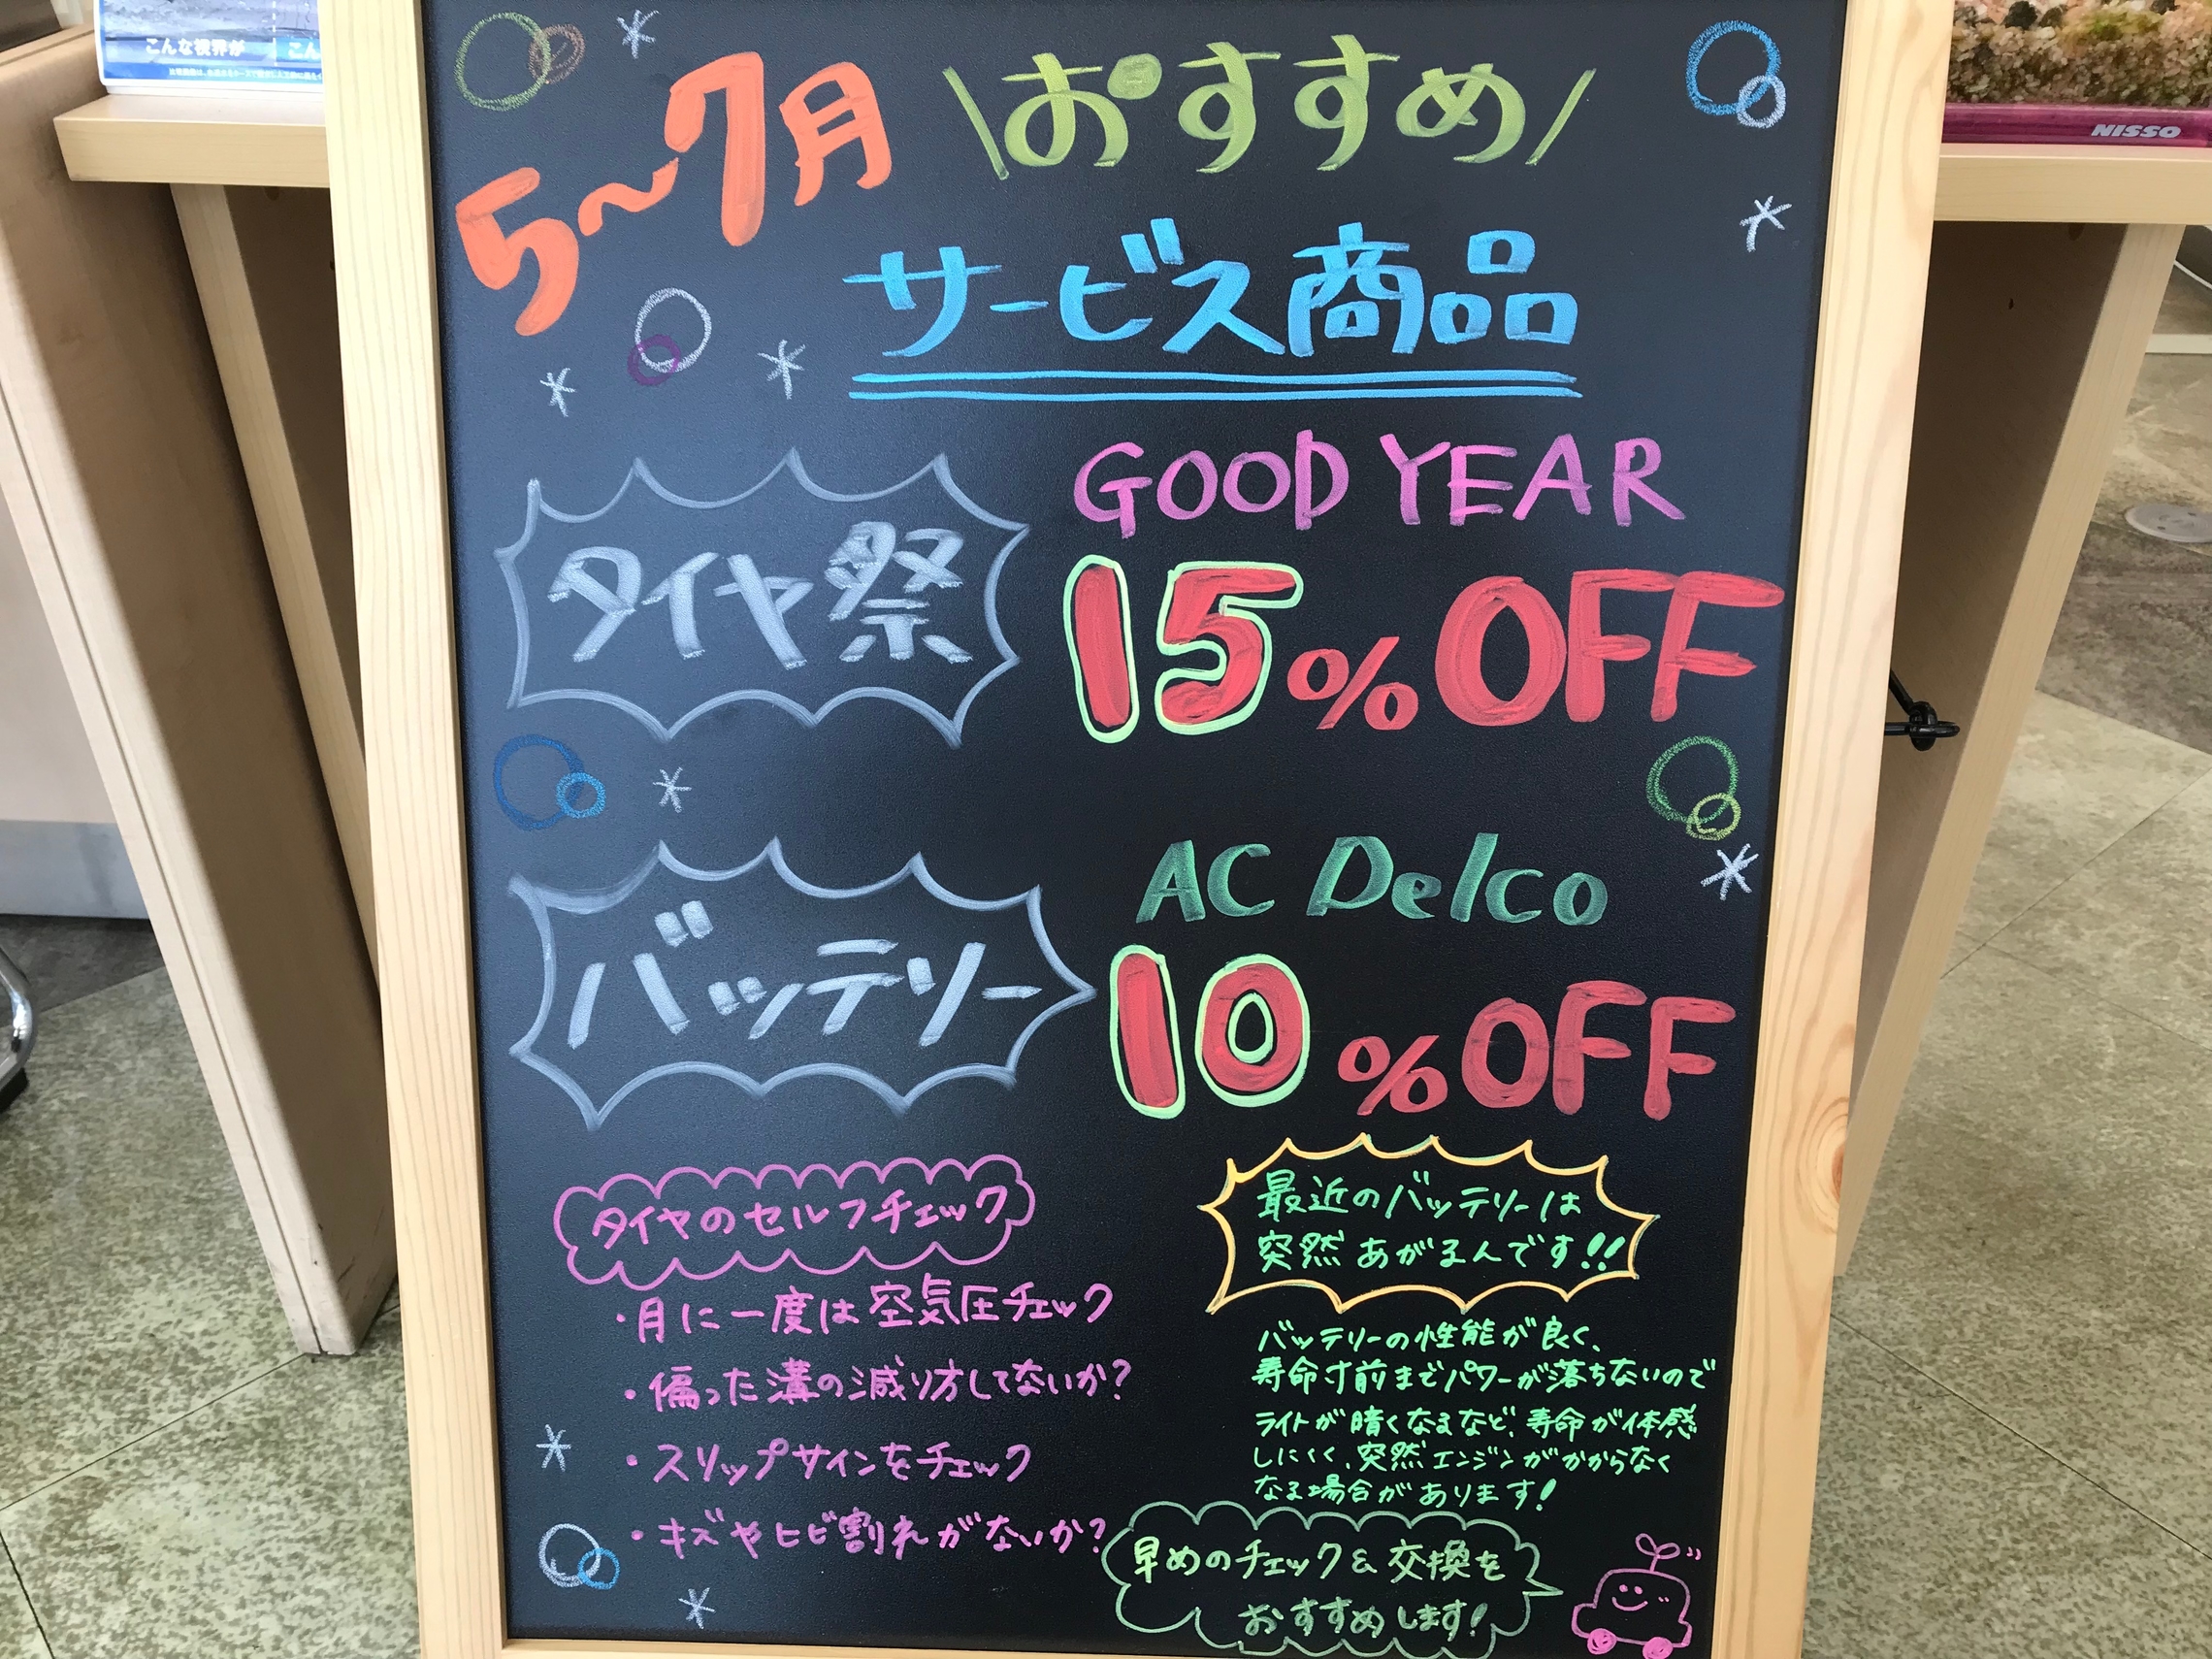 こんな視界が
こん
NISSO
5〜7月
\おすすめ/
サービス商品
タイヤ祭
GOOD YEAR
15%OFF
バッテリー
AC Delco
10%OFF
タイヤのセルフチェック
・月に一度は空気圧チェック
・偏った溝の減り方してないか?
・スリップサインをチェック
・キズやヒビ割れがないか?
最近のバッテリーは
突然あがるんです!!
バッテリーの性能が良く、
寿命寸前までパワーが落ちないので
ライトが暗くなるなど、寿命が体感
しにくく、突然エンジンがかからなく
なる場合があります!
早めのチェック&交換を
おすすめします!